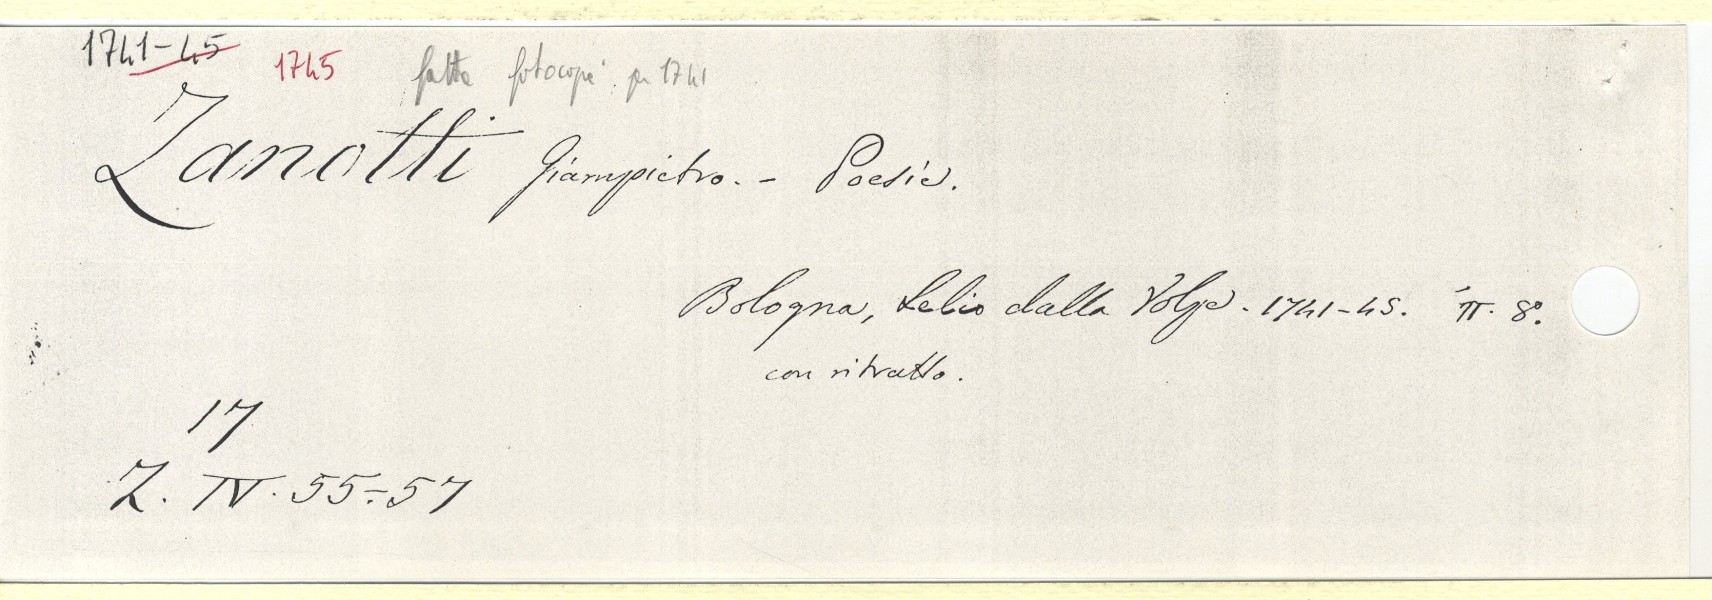 1741-45 1745 fatta fotocopia per 1741
Zanotti Giampietro. - Poesie.
Bologna, Lelio dalla Volpe. 1741-45. 8º.
con ritratto.
17
Z. IV. 55-57